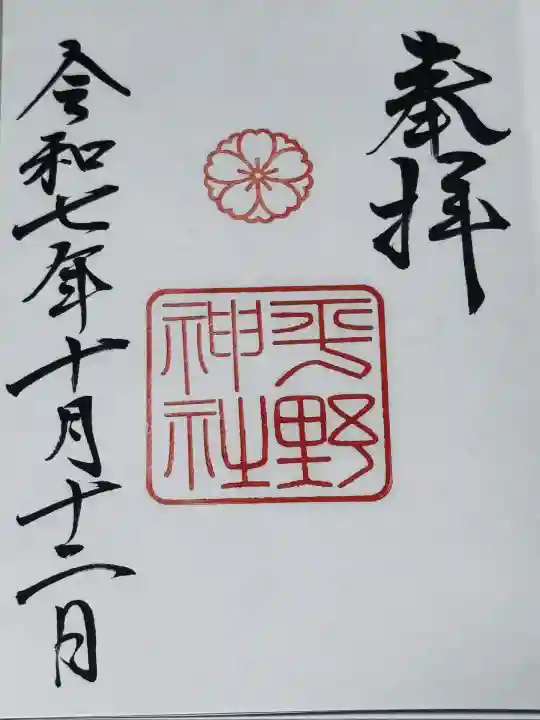 奉拝
平野
神社
令和七年十月十二日